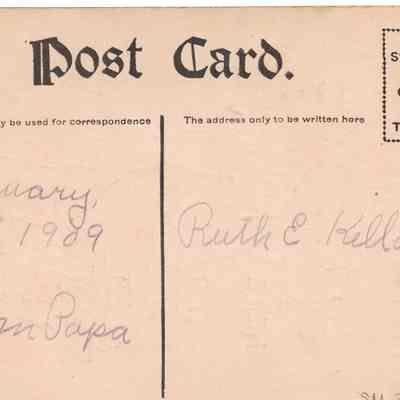 Post Card.
y be used for correspondence
The address only to be written here
uary,
1909
Papa
Ruth E Kell